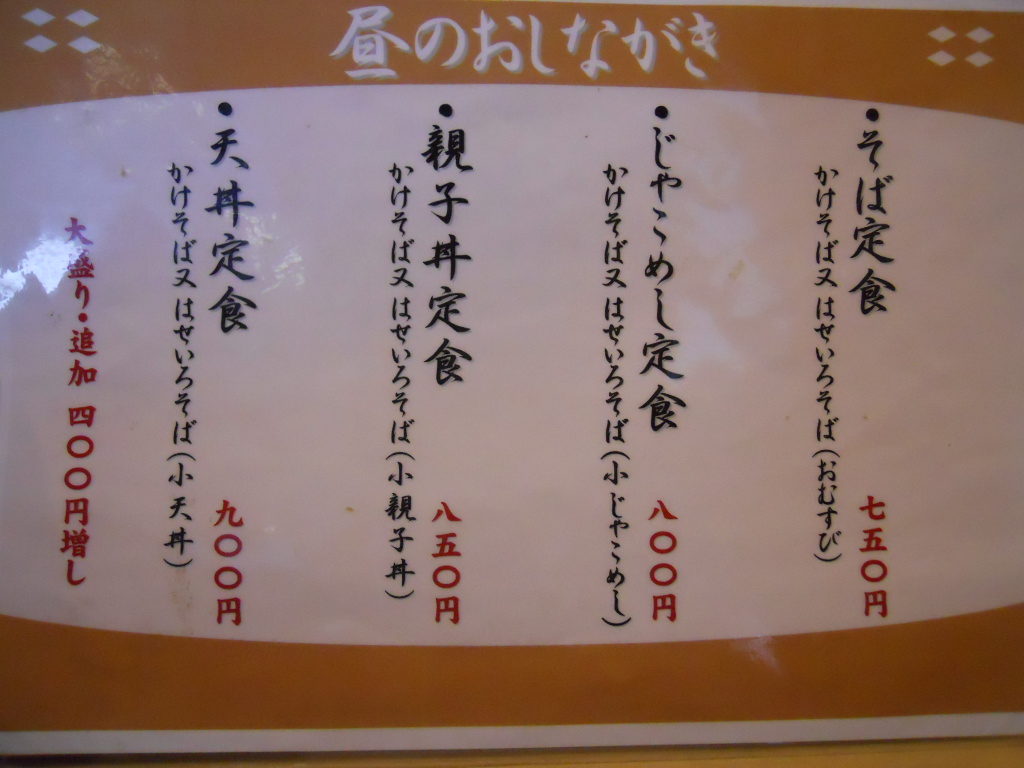 昼のおしながき
●そば定食 七五〇円
かけそば又はせいろそば(おむすび)
●じゃこめし定食 八〇〇円
かけそば又はせいろそば(小じゃこめし)
●親子丼定食 八五〇円
かけそば又はせいろそば(小親子丼)
●天丼定食 九〇〇円
かけそば又はせいろそば(小天丼)
大盛り・追加 四〇〇円増し